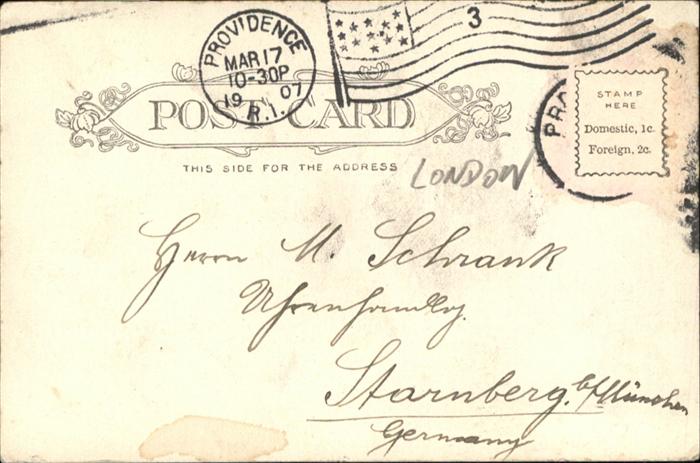 PROVIDENCE
MAR 17
10-30P
19 07
R.I.
3
POST CARD
THIS SIDE FOR THE ADDRESS
STAMP
HERE
Domestic, 1c.
Foreign, 2c.
PRO
LONDON
Herrn M. Schrank
Uhrenhandlg.
Starnberg. b/München
Germany